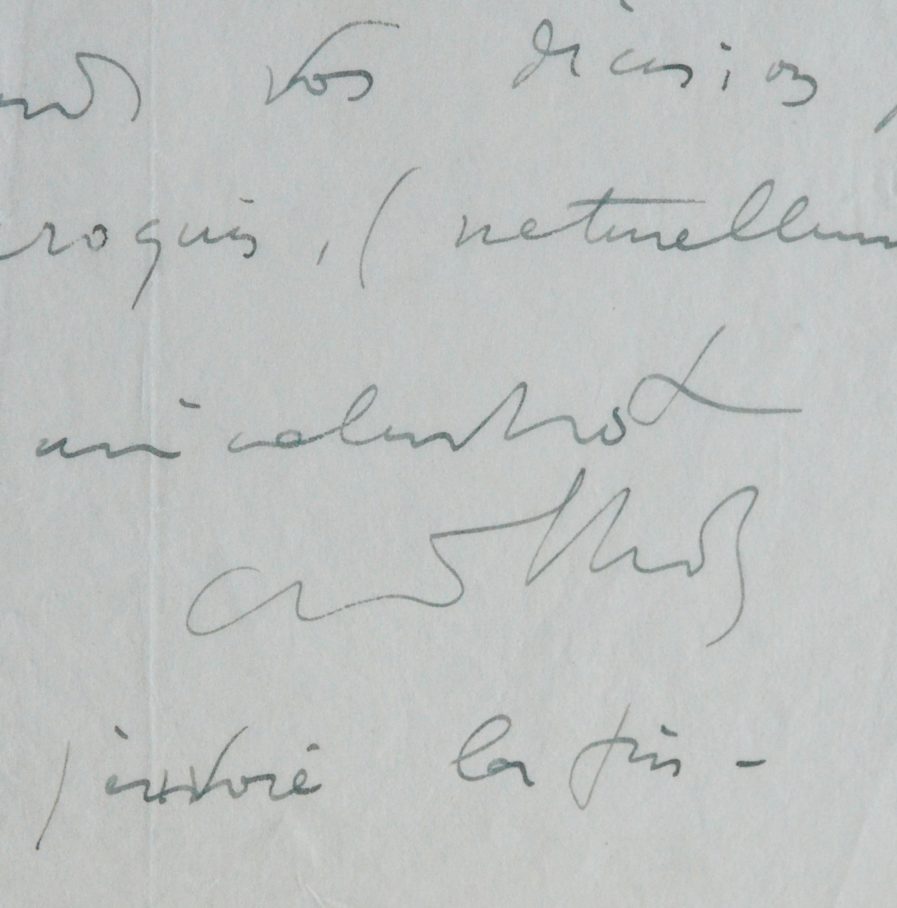 vos décision
croquis, (naturellem
amicalement
j'envoie la fin -